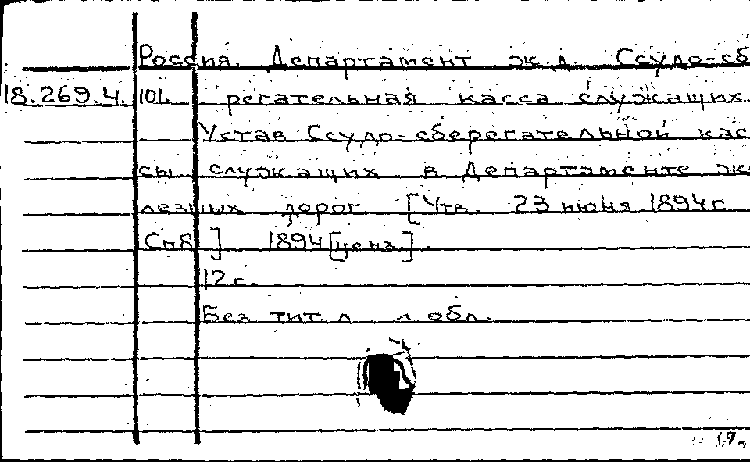 Россия. Департамент ж.д. Ссудо-сб
18.269.4. 101 регательная касса служащих.
Устав Ссудо-сберегательной кас
сы служащих в Департаменте же
лезных дорог [Утв. 23 июня 1894г
Спб] 1894 [ценз.].
12 с.
Без тит. л. и обл.